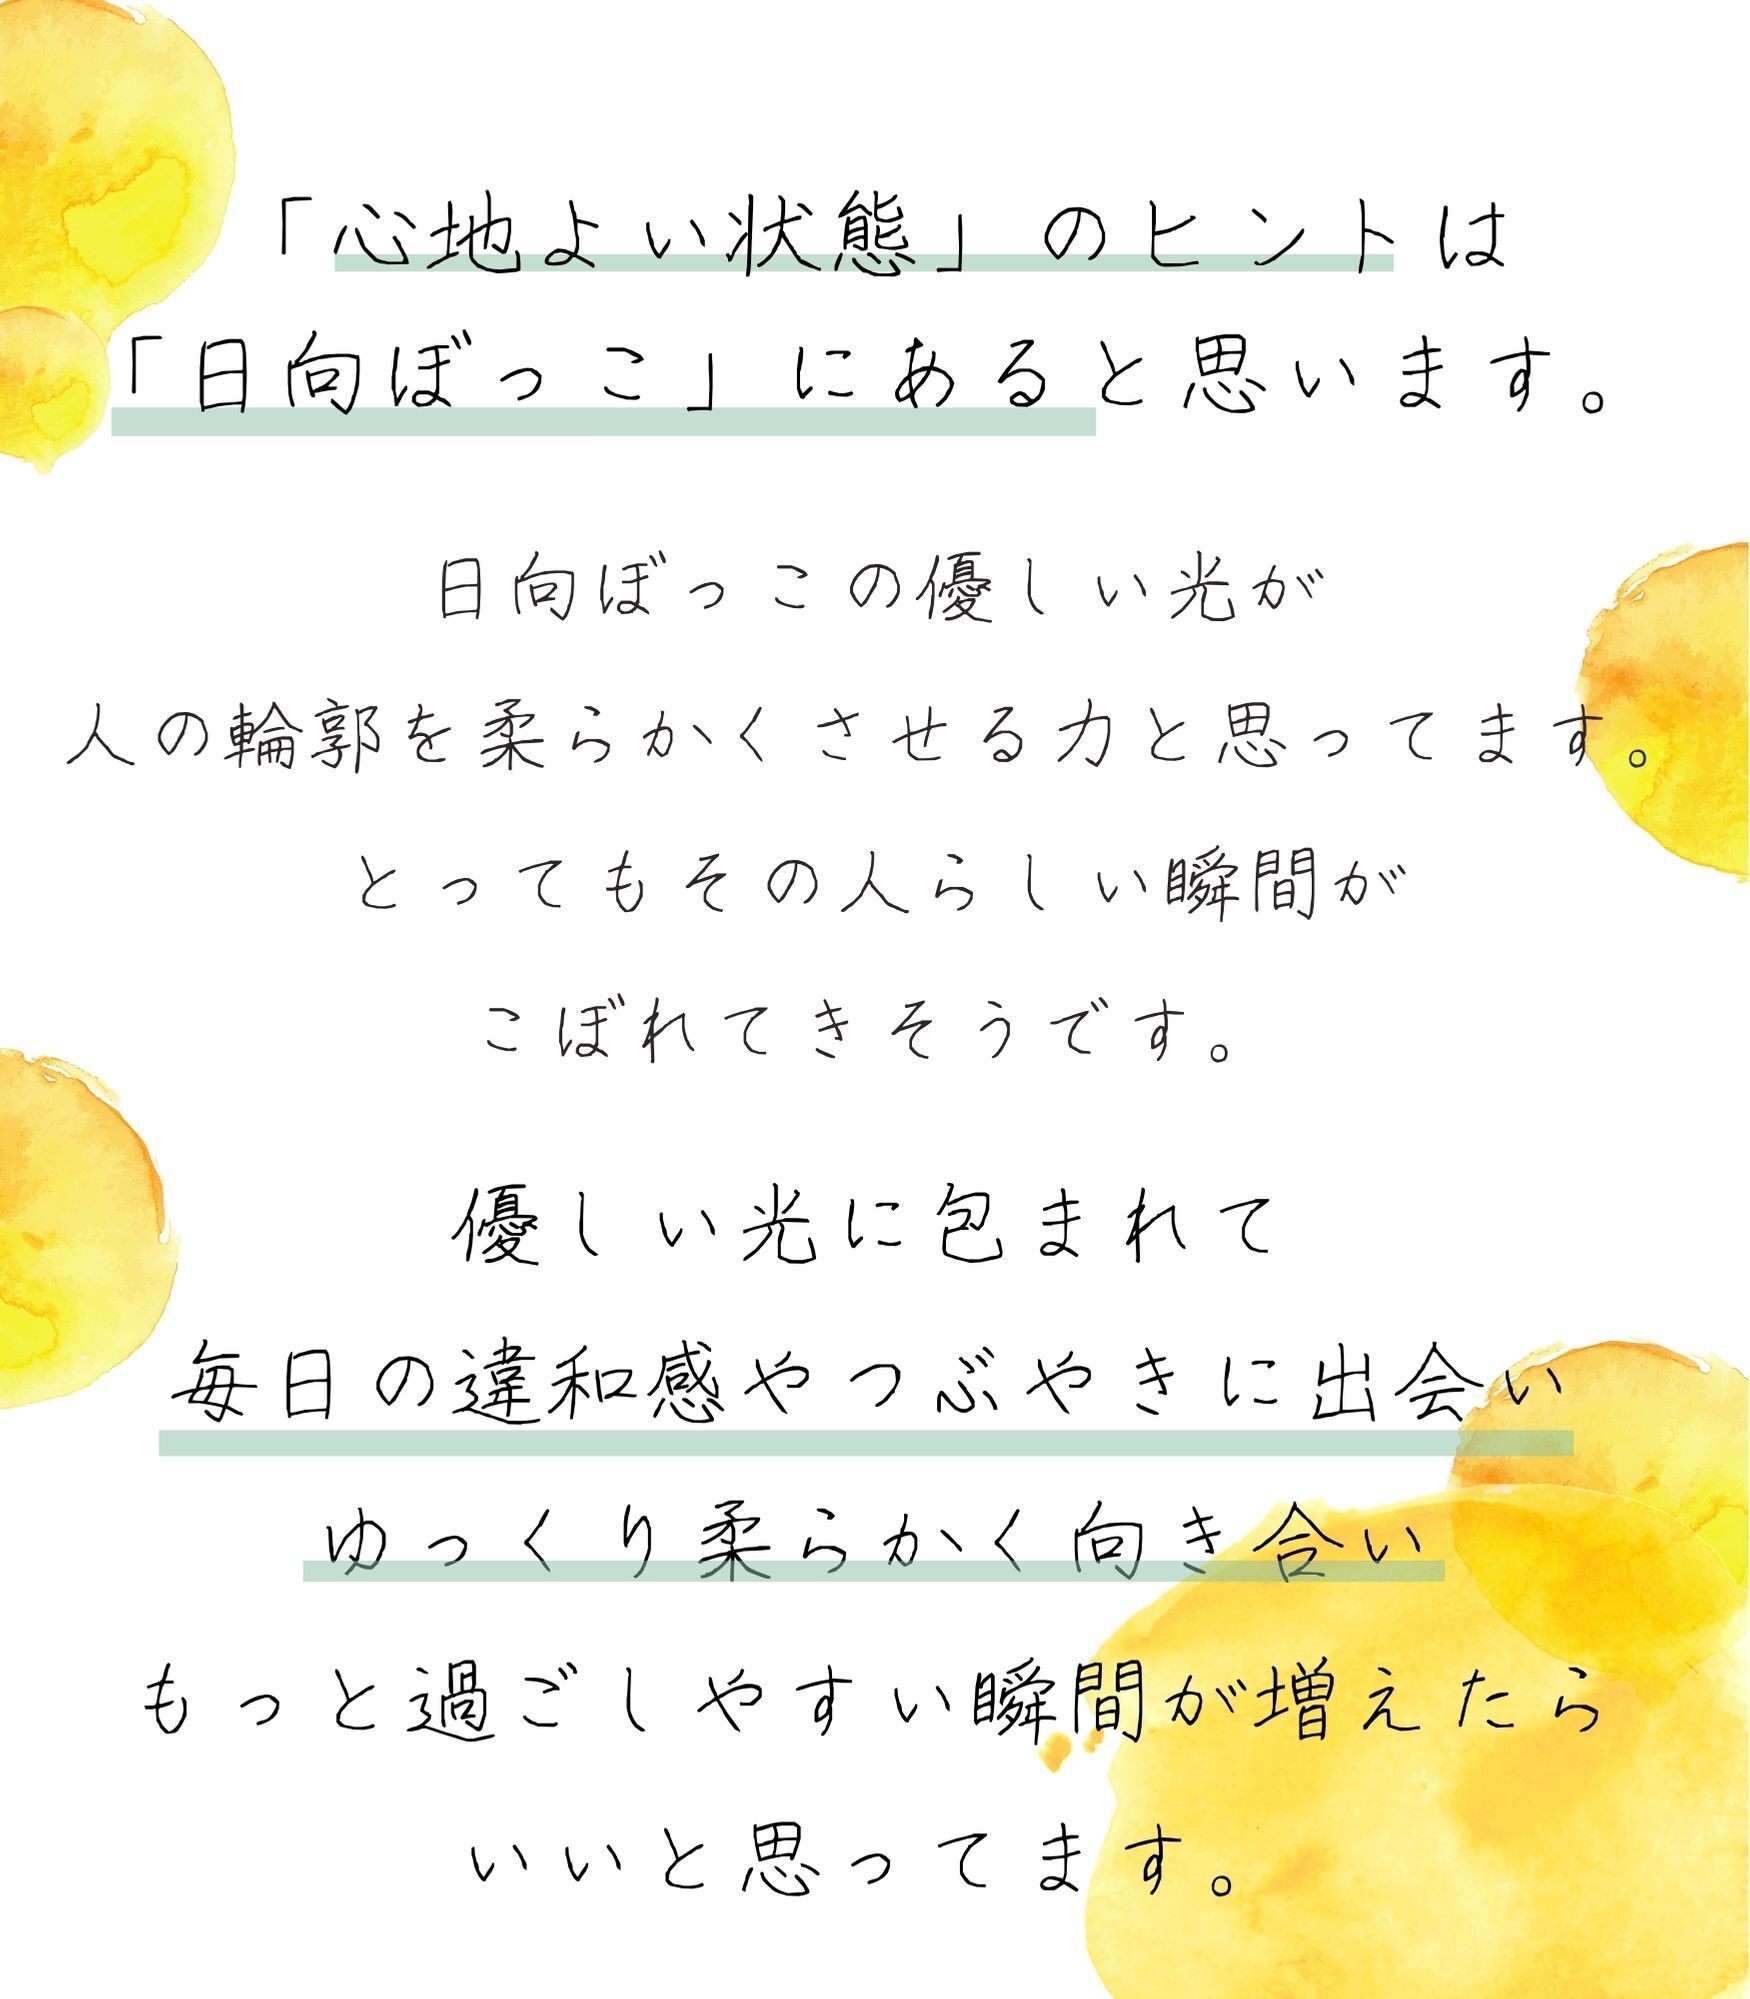 「心地よい状態」のヒントは
「日向ぼっこ」にあると思います。
日向ぼっこの優しい光が
人の輪郭を柔らかくさせる力と思ってます。
とってもその人らしい瞬間が
こぼれてきそうです。
優しい光に包まれて
毎日の違和感やつぶやきに出会い
ゆっくり柔らかく向き合い
もっと過ごしやすい瞬間が増えたら
いいと思ってます。